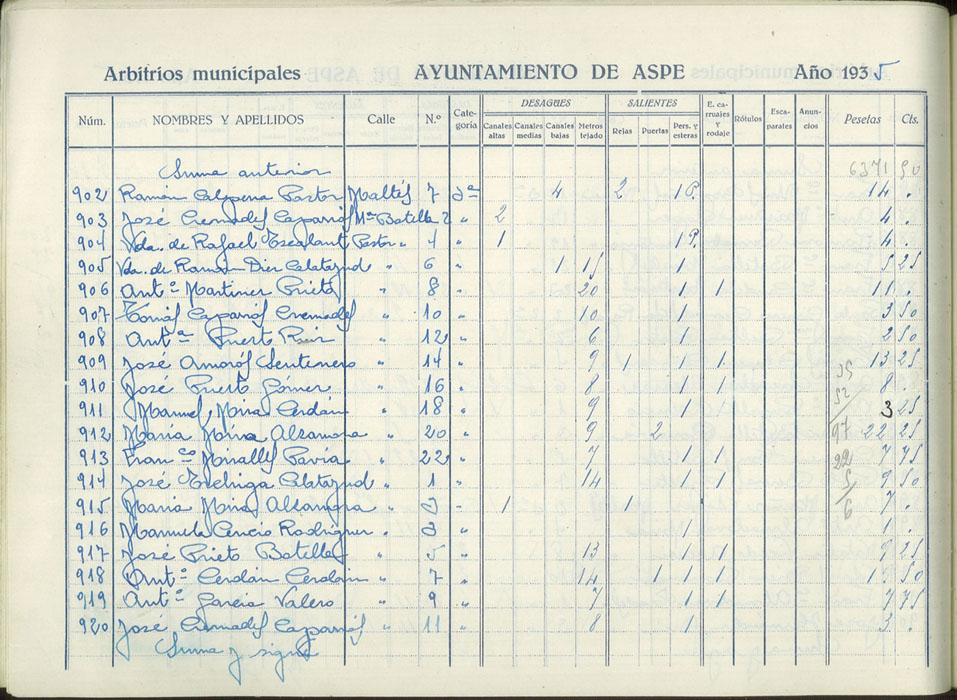 Arbitrios municipales AYUNTAMIENTO DE ASPE Año 1935
Núm. NOMBRES Y APELLIDOS Calle N.º Categoría DESAGUES Canales altas Canales medias Canales bajas Metros tejado SALIENTES Rejas Puertas Pers. y esteras E. carruajes y rodaje Rótulos Escaparates Anuncios Pesetas Cts.
Suma anterior 6371 90
902 Ramón Calpena Pastor Maltés 7 3ª 4 2 1 P. 14 .
903 José Cremades Caparrós Mª Botella 2 " 2 4 .
904 Vda. de Rafael Escalant Pastor " 4 " 1 1 P. 4 .
905 Vda. de Ramón Díez Calatayud " 6 " 1 15 1 5 25
906 Antº Martinez Prieto " 8 " 20 1 1 11 .
907 Tomás Caparrós Cremades " 10 " 10 1 3 50
908 Antª Puerto " 12 " 6 1 2 50
909 José Amorós Sentenero " 14 " 9 1 1 1 13 25
910 José Prieto Gómez " 16 " 8 1 1 8 .
911 Manuel Mira Cerdán " 18 " 9 1 3 25
912 María Mira Alzamora " 20 " 9 2 22 25
913 Franco Miralles Pavía " 22 " 7 1 1 7 75
914 José Calatayud " 1 " 14 1 1 9 50
915 María Mira Alzamora " 3 - 1 1 7 .
916 Manuela Cencio Rodriguez " 3 " 1 1 .
917 José Prieto Botella " 5 " 13 1 1 9 25
918 Antº Cerdán Cerdán " 7 " 14 1 1 1 50
919 Antº García Valero " 9 " 7 1 1 7 75
920 José Cremades Caparrós " 11 " 8 1 3 .
Suma y sigue